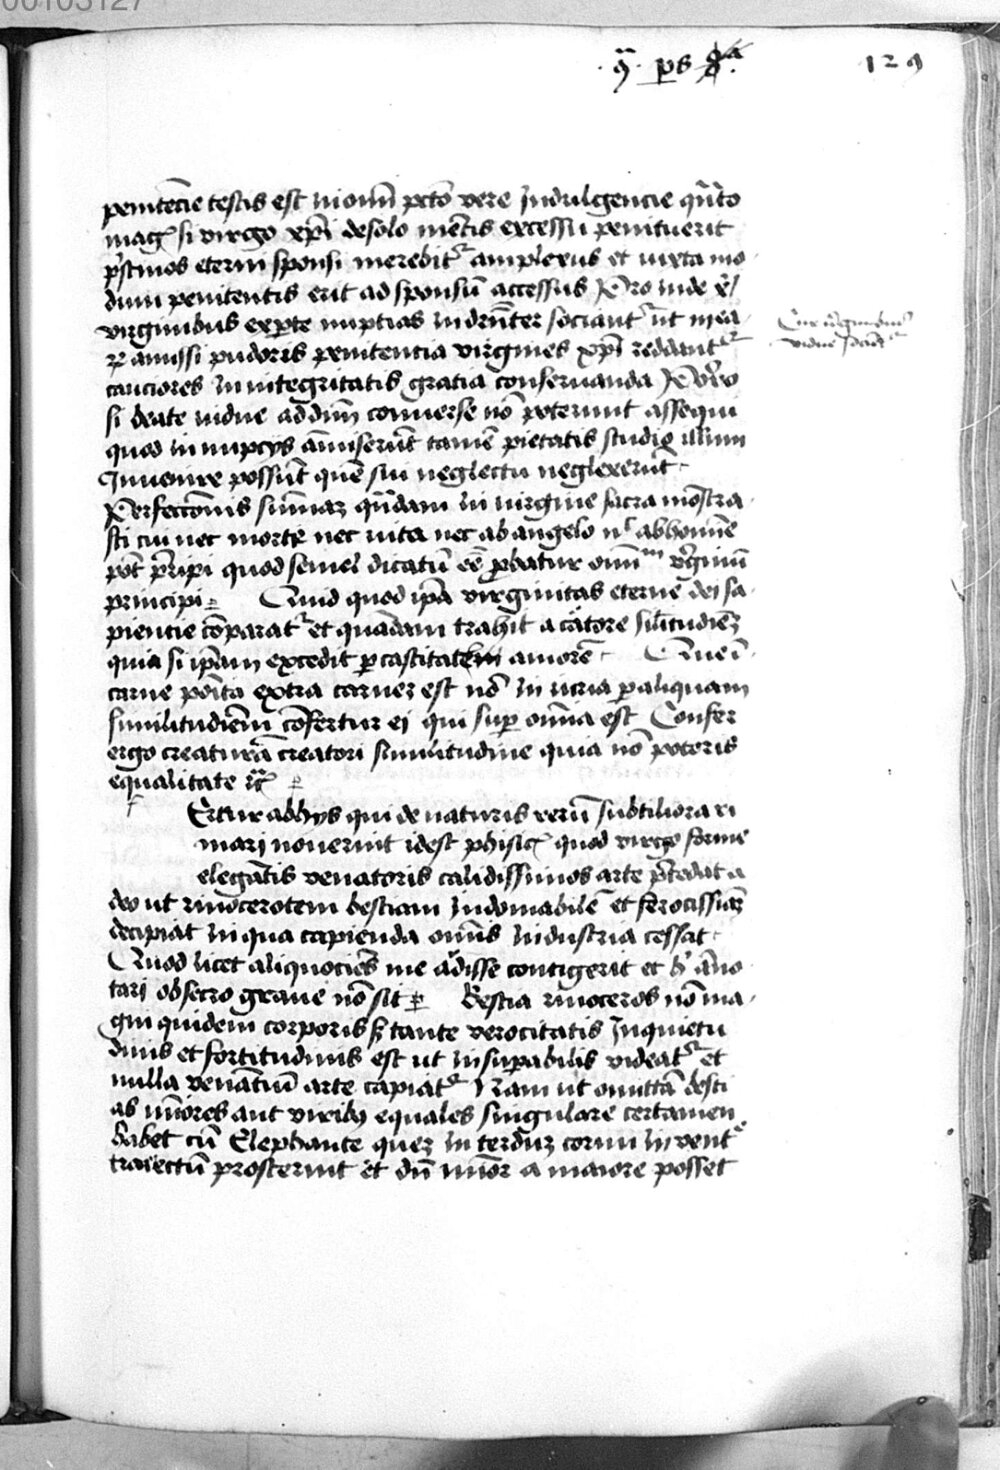 00103127
129
penitēcie testis est
vere Indulgencie qn̄to
si virgo xp̄i de solo mētis excessu penituerit
p̄stinos eterni sponsi merebitᷣ amplexus et iuxta mo
dum penitentis erit ad sponsū accessus Pro inde
virginibus experte nuptias
sociantᷣ ut
amissi pudoris penitencia virgines xp̄i reddantᷣ
Cur v̄ginibus
vidue
cauciores in integritatis gratia conseruanda Porro
si beate uidue ad dn̄m conuerse nō poterunt assequi
quod in nupcijs āmiserūt tamē pietatis studio illum
Inuenire possūt quē sui neglectu neglexerūt
Perfectōnis sūmaz quādam in uirgine sacra mōstra
sti cui nec morte nec uita nec ab angelo nͨ ab homīe
pōt p̄ripi quod semel dicatū eē p̄batur oīm v̄ginū
principi Quid quod ip̄a virginitas eterne dei sa
piencie cōparatᷣ et quādam trahit a c̄atore silitudiēz
quia si ip̄am excedit p castitatem amorē Que ī
carne poīta extra carnez est nō in
p aliquam
similitudinēm cōfertur ei qui sup omīa est Confer
ergo creaturā creatori similitudine quia nō poteris
equalitate
Ertur ab hijs qui de naturis rerū subtiliora ri
mari nouerint idest phisici quod virgo forme
elegātis venatoris calidissimos arte p̄cedat a
deo ut rinocerotem bestiam Indomabilē et ferocissiāz
decipiat In qua capienda omīs industria cessat
Quod licet aliquociēs me
contigerit et
tari obsecro graue nō sit Bestia rinoceros nō ma
gni quidem corporis sꝫ tante verocitatis Inquietu
dinis et fortitudinis est ut insupabilis videatᷣ et
nulla venātiū arte capiatᷣ Nam ut omittā besti
as mīores aut viribꝫ equales singulare certamen
habet cū Elephante quez
cornu in ventᷣe
traiectū prosternit et dū mīor a maiore posset